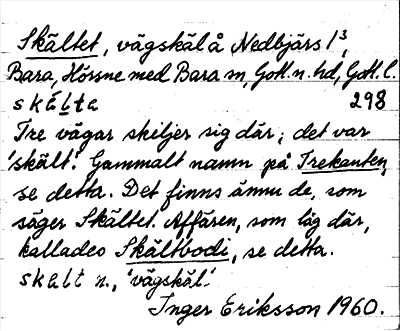 Skältet, vägskäl å Nedbjärs 1³,
Bara, Hörsne med Bara sn, Gotl. n. hd, Gotl. l.
skälta 298
Tre vägar skiljer sig där; det var
'skält'. Gammalt namn på Trekanten,
se detta. Det finns ännu de, som
säger Skältet. Affären, som låg där,
kallades Skältbodi, se detta.
skalt n., 'vägskäl'.
Inger Eriksson 1960.